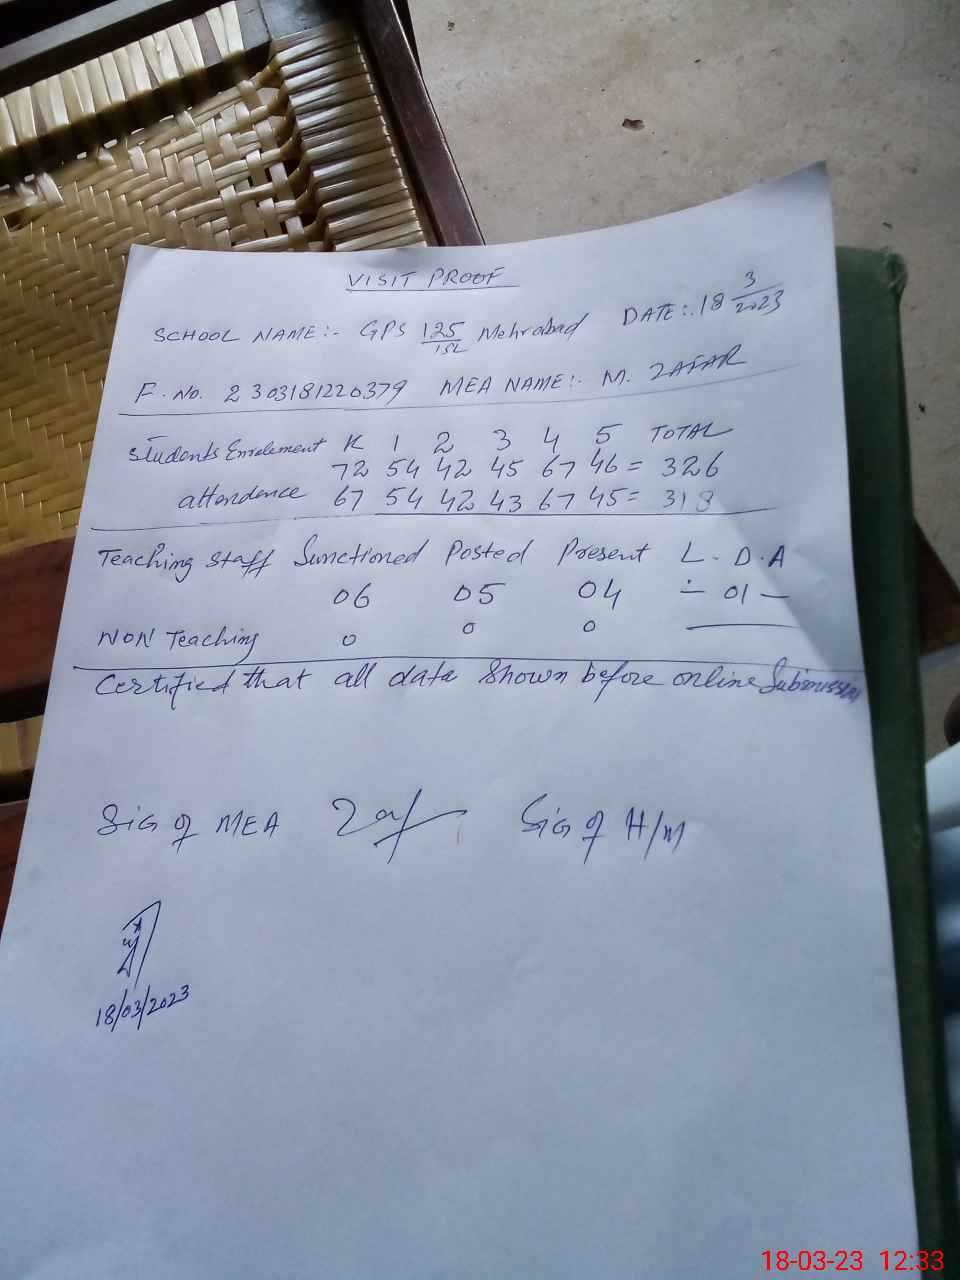 VISIT PROOF
SCHOOL NAME:- GPS 125/15L Mehrabad DATE:. 18 3/2023
F. No. 2303181220379 MEA NAME:. M. ZAFAR
Students Enrolement K 1 2 3 4 5 TOTAL
72 54 42 45 67 46 = 326
attendence 67 54 42 43 67 45 = 318
Teaching Staff Sunctioned Posted Present L . D . A
06 05 04 - 01 -
NON Teaching 0 0 0
Certified that all data Shown before online Submission
Sig of MEA Zaf Sig of H/M
18/03/2023
18-03-23 12:33